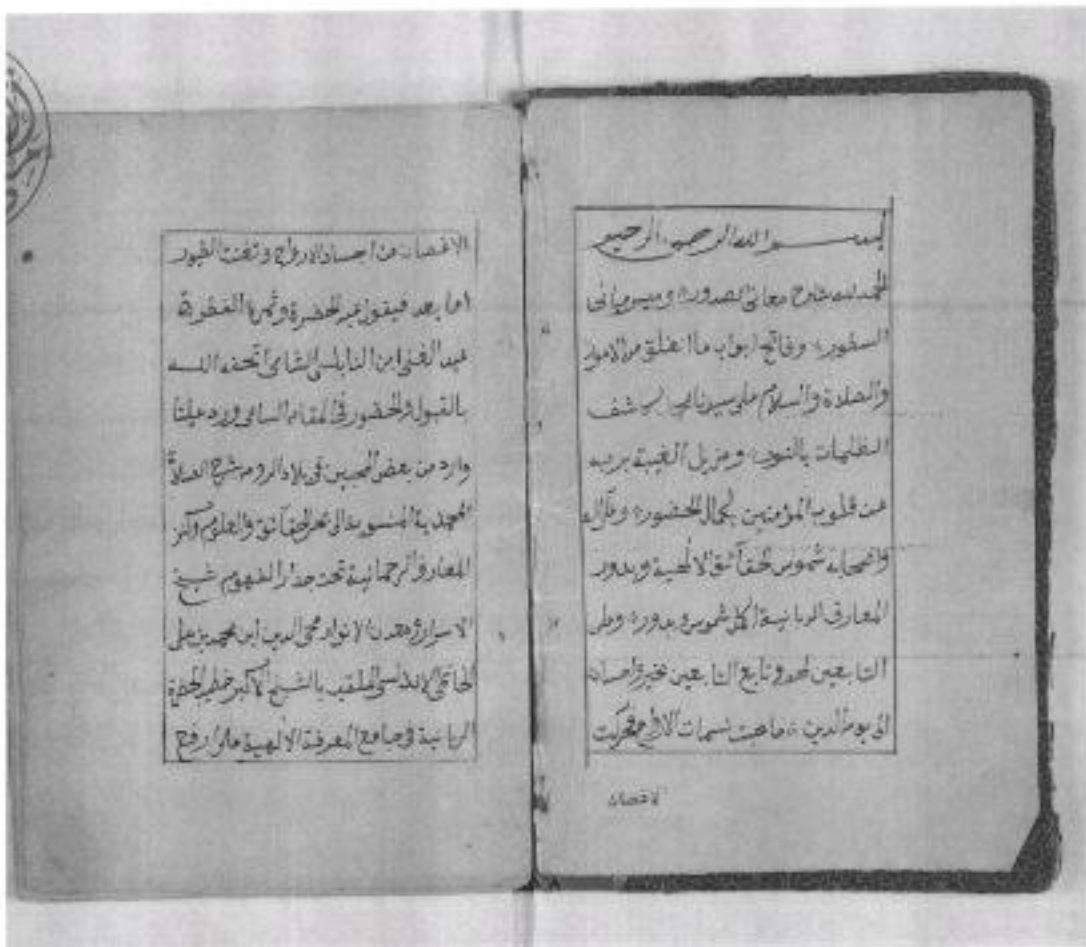 بسم الله الرحمن الرحيم
الحمد لله شارح معاني الصدور وميسر مباني
السطور وفاتح ابواب ما انغلق من الامور
والصلاة والسلام على سيدنا محمد كاشف
الظلمات بالنور ومزيل الغيبة بربه
عن قلوب المؤمنين بكمال الحضور وعلى اله
واصحابه شموس الحقائق الالهية وبدور
المعارف الربانية اكمل شموس وبدور وعلى
التابعين لهم وتابع التابعين بخير واحسان
الى يوم الدين ما هبت نسمات الارواح فحركت
الاغصان
الاغصان من اجساد الارواح وتغنت الطيور
اما بعد فيقول عبد الحضرة
عبد الغني ابن النابلسي الشامي اتحفه الله
بالقبول والحضور في المقام السامي ورد علينا
وارد من بعض المحبين في بلاد الروم شرح الصلاة
المحمدية المنسوبة الى بحر الحقائق والعلوم وكنز
المعارف الرحمانية تحت جدار الفهوم شيخ
الاسرار ومعدن الانوار محيي الدين ابن محمد بن علي
الحاتمي الاندلسي الملقب بالشيخ الاكبر خطيب الحضرة
الربانية في جامع المعرفة الالهية على ارفع